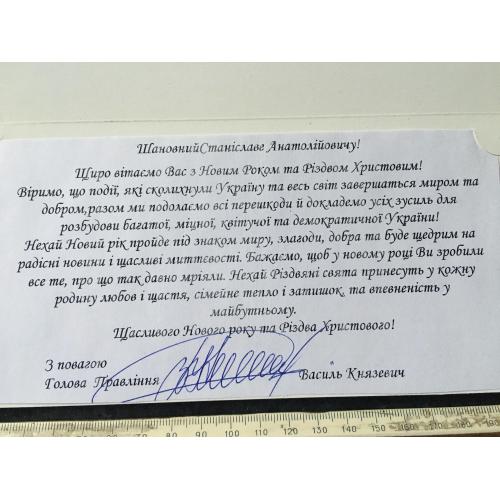 ШановнийСтаніславе Анатолійовичу!
Щиро вітаємо Вас з Новим Роком та Різдвом Христовим!
Віримо, що події, які сколихнули Україну та весь світ завершаться миром та
добром,разом ми подолаємо всі перешкоди й докладемо усіх зусиль для
розбудови багатої, міцної, квітучої та демократичної України!
Нехай Новий рік пройде під знаком миру, злагоди, добра та буде щедрим на
радісні новини і щасливі миттєвості. Бажаємо, щоб у новому році Ви зробили
все те, про що так давно мріяли. Нехай Різдвяні свята принесуть у кожну
родину любов і щастя, сімейне тепло і затишок, та впевненість у
майбутньому.
Щасливого Нового року та Різдва Христового!
З повагою
Голова Правління Василь Князевич
80 90 100 110 120 130 140 150 160 170 180 190